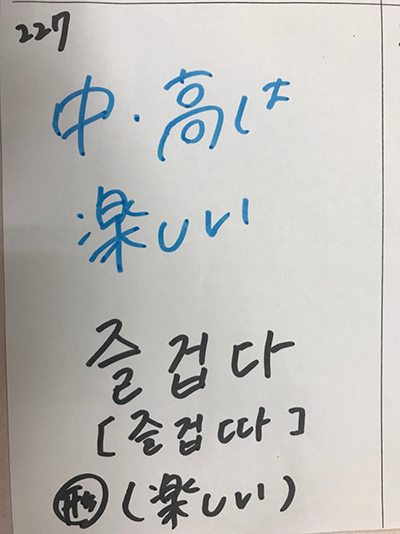 227
中・高は
楽しい
즐겁다
[즐겁따]
形 (楽しい)